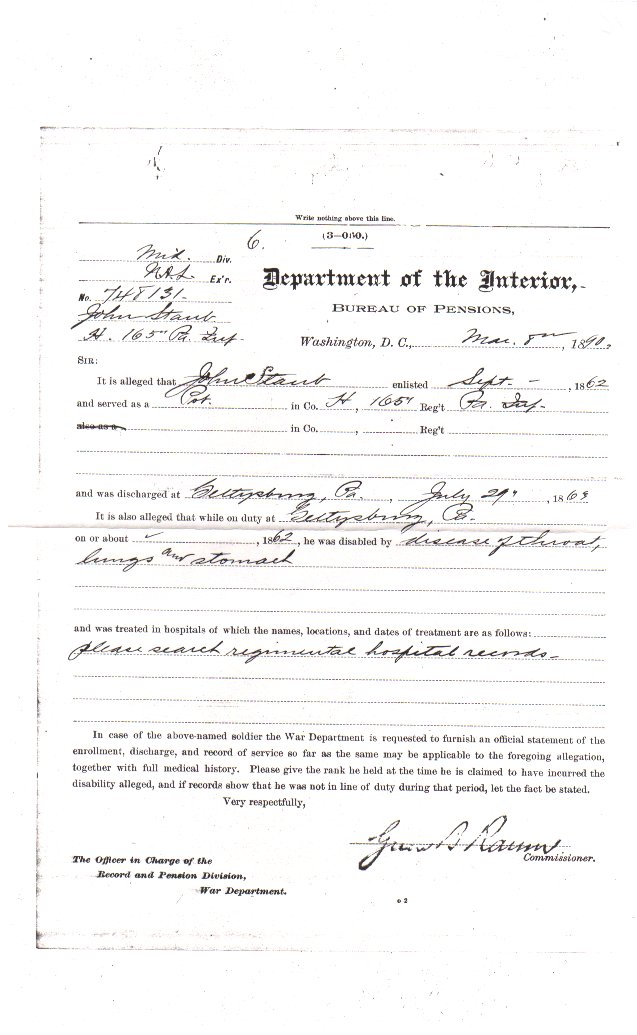 Write nothing above this line.
6. (3—060.)
Mid. Div.
Ex'r.
No. 748131.
John Staub
H. 165" Pa. Inf.
Department of the Interior,
BUREAU OF PENSIONS,
Washington, D. C., Mar. 8", 1890.
SIR:
It is alleged that John Staub enlisted Sept. –, 1862
and served as a Pvt. in Co. H, 165" Reg't Pa. Inf.
also as a in Co. , Reg't
and was discharged at Gettysburg, Pa. , July 29" , 1863
It is also alleged that while on duty at Gettysburg, Pa.
on or about , 1862, he was disabled by disease of throat,
lungs and stomach
and was treated in hospitals of which the names, locations, and dates of treatment are as follows:
please search regimental hospital records–
In case of the above-named soldier the War Department is requested to furnish an official statement of the
enrollment, discharge, and record of service so far as the same may be applicable to the foregoing allegation,
together with full medical history. Please give the rank he held at the time he is claimed to have incurred the
disability alleged, and if records show that he was not in line of duty during that period, let the fact be stated.
Very respectfully,
Green B Raum
Commissioner.
The Officer in Charge of the
Record and Pension Division,
War Department.
o 2